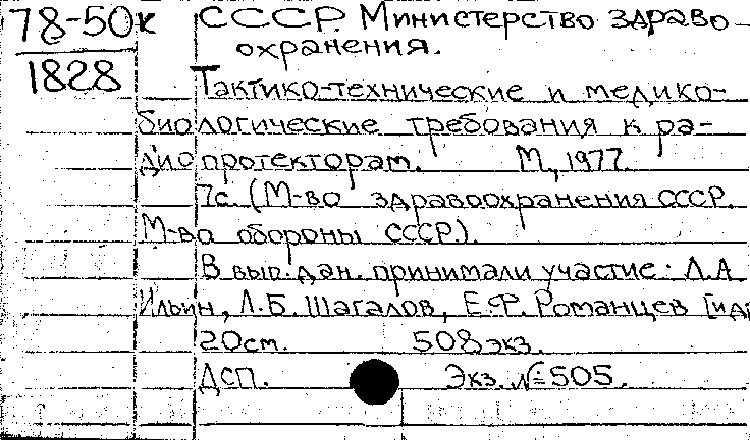 78-50к СССР. Министерство здраво-
охранения.
1828
Тактико-технические и медико-
биологические требования к ра-
диопротекторам. М., 1977.
7с. (М-во здравоохранения СССР.
М-во обороны СССР.).
В вып. дан. принимали участие: Л.А
Ильин, Л.Б. Шагалов, Е.Ф. Романцев [и др
20см. 508 экз.
ДСП. Экз. № 505.